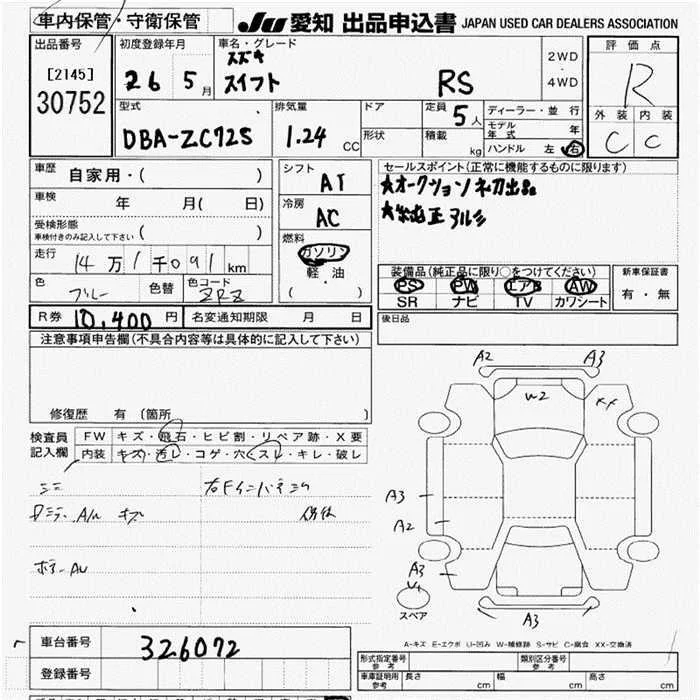 車内保管・守衛保管 JU 愛知 出品申込書 JAPAN USED CAR DEALERS ASSOCIATION
出品番号 [2145] 30752
初度登録年月 26 5月
車名・グレード スズキ スイフト RS
2WD・4WD
評価点 R
外装 C 内装 C
型式 DBA-ZC72S
排気量 1.24 CC
ドア
形状
定員 5人
積載 kg
ディーラー・並行
モデル年式 年
ハンドル 左 右
車歴 自家用・( )
車検 年 月( 日)
受検形態 車検付きのみ記入して下さい ( )
走行 14万1千091km
色 ブルー 色替 色コード ZRZ
シフト AT
冷房 AC
燃料 ガソリン 軽・油 ( )
セールスポイント(正常に機能するものに限ります)
★オークション初出品
★純正アルミ
装備品(純正品に限り○をつけてください)
PS PW エアB AW
SR ナビ TV カワシート
新車保証書 有・無
R券 10,400円 名変通知期限 月 日
後日品
注意事項申告欄(不具合内容等は具体的に記入して下さい)
修復歴 有 〔箇所 〕
検査員記入欄
FW キズ・飛石・ヒビ割・リペア跡・X要
内装 キズ・汚レ・コゲ・穴・スレ・キレ・破レ
A2 A3
W2 XX
A3
A2
A3
V1
スペア
A3
A-キズ E-エクボ U-凹み W-補修跡 S-サビ C-腐食 XX-交換済
車台番号 326072
登録番号
形式指定番号 参考 類別区分番号 参考
車庫証明用 参考 長さ cm 幅 cm 高さ cm